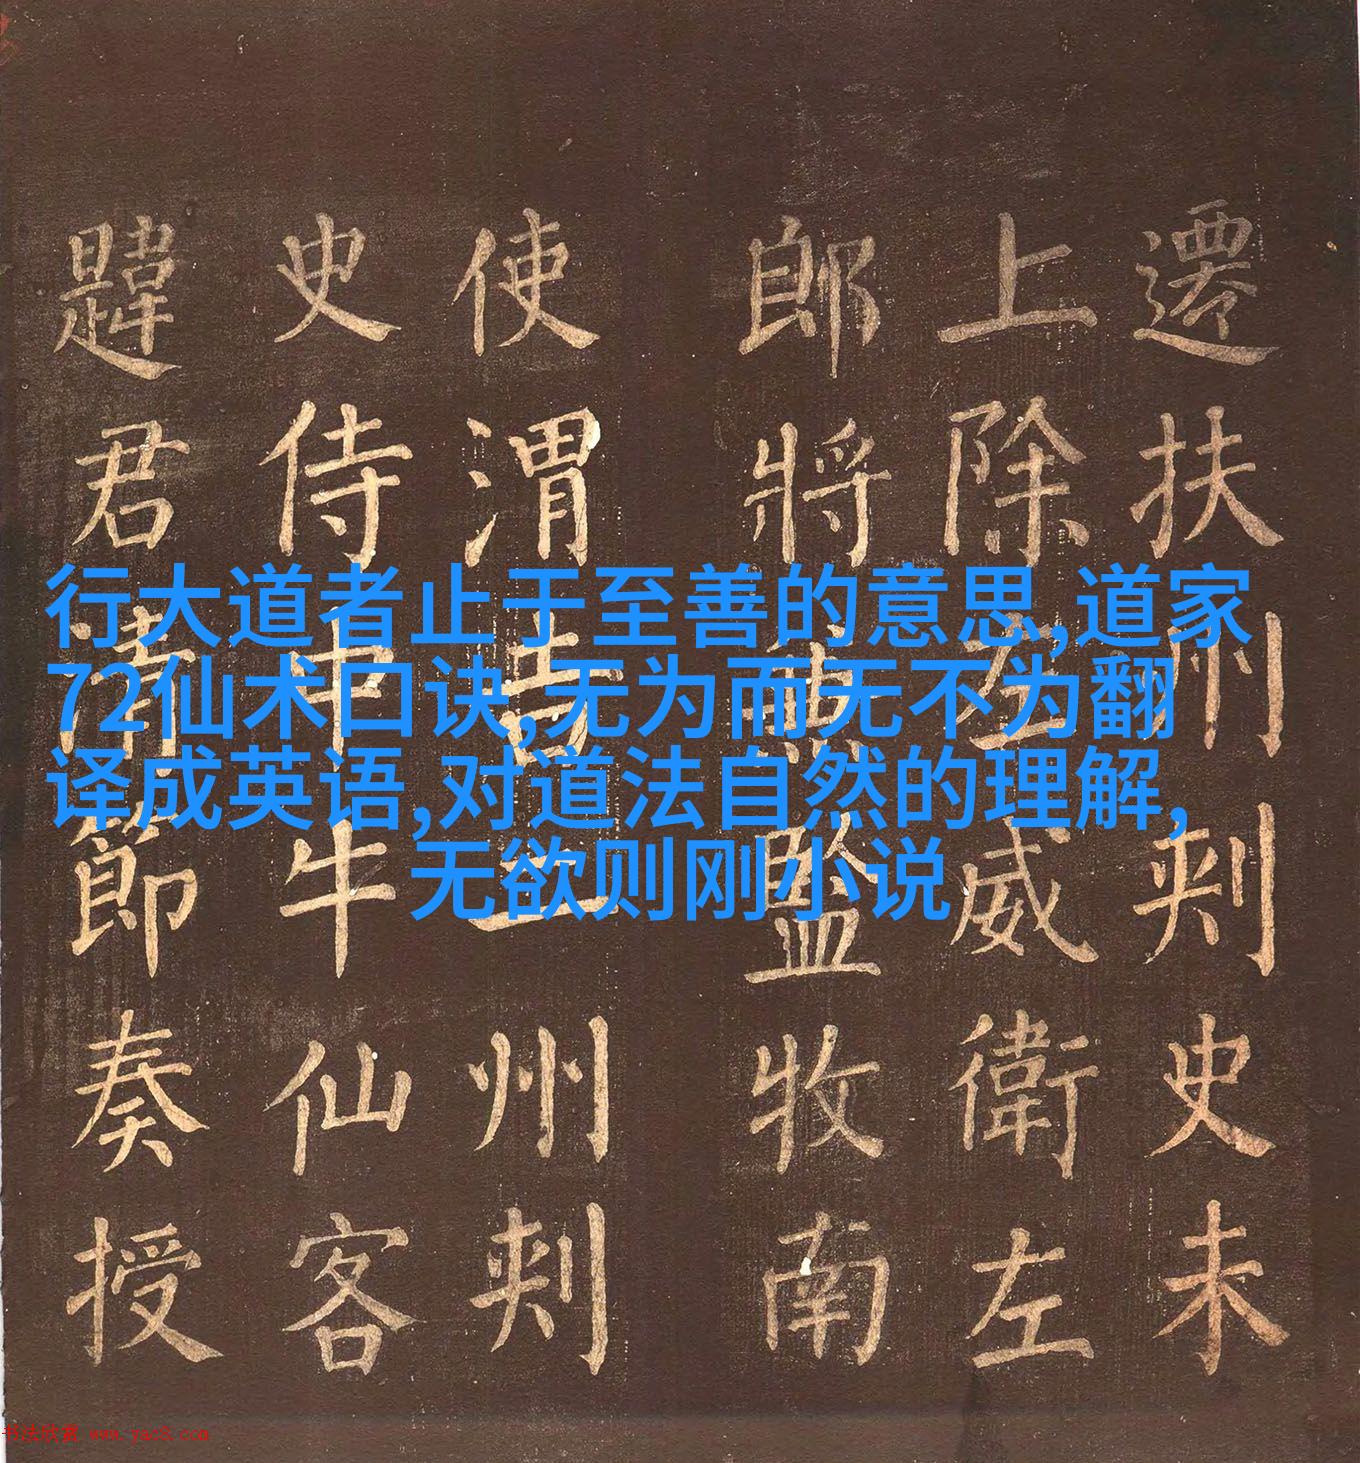 遷扶州刺史未
上除左威衛左
郎將兼監牧南
使渭吉二州刺
史侍中牛仙客
韙君清節奏授
行大道者止于至善的意思,道家
72仙术口诀,无为而无不为翻
译成英语,对道法自然的理解,
无欲则刚小说
书法欣赏 www.yac8.com